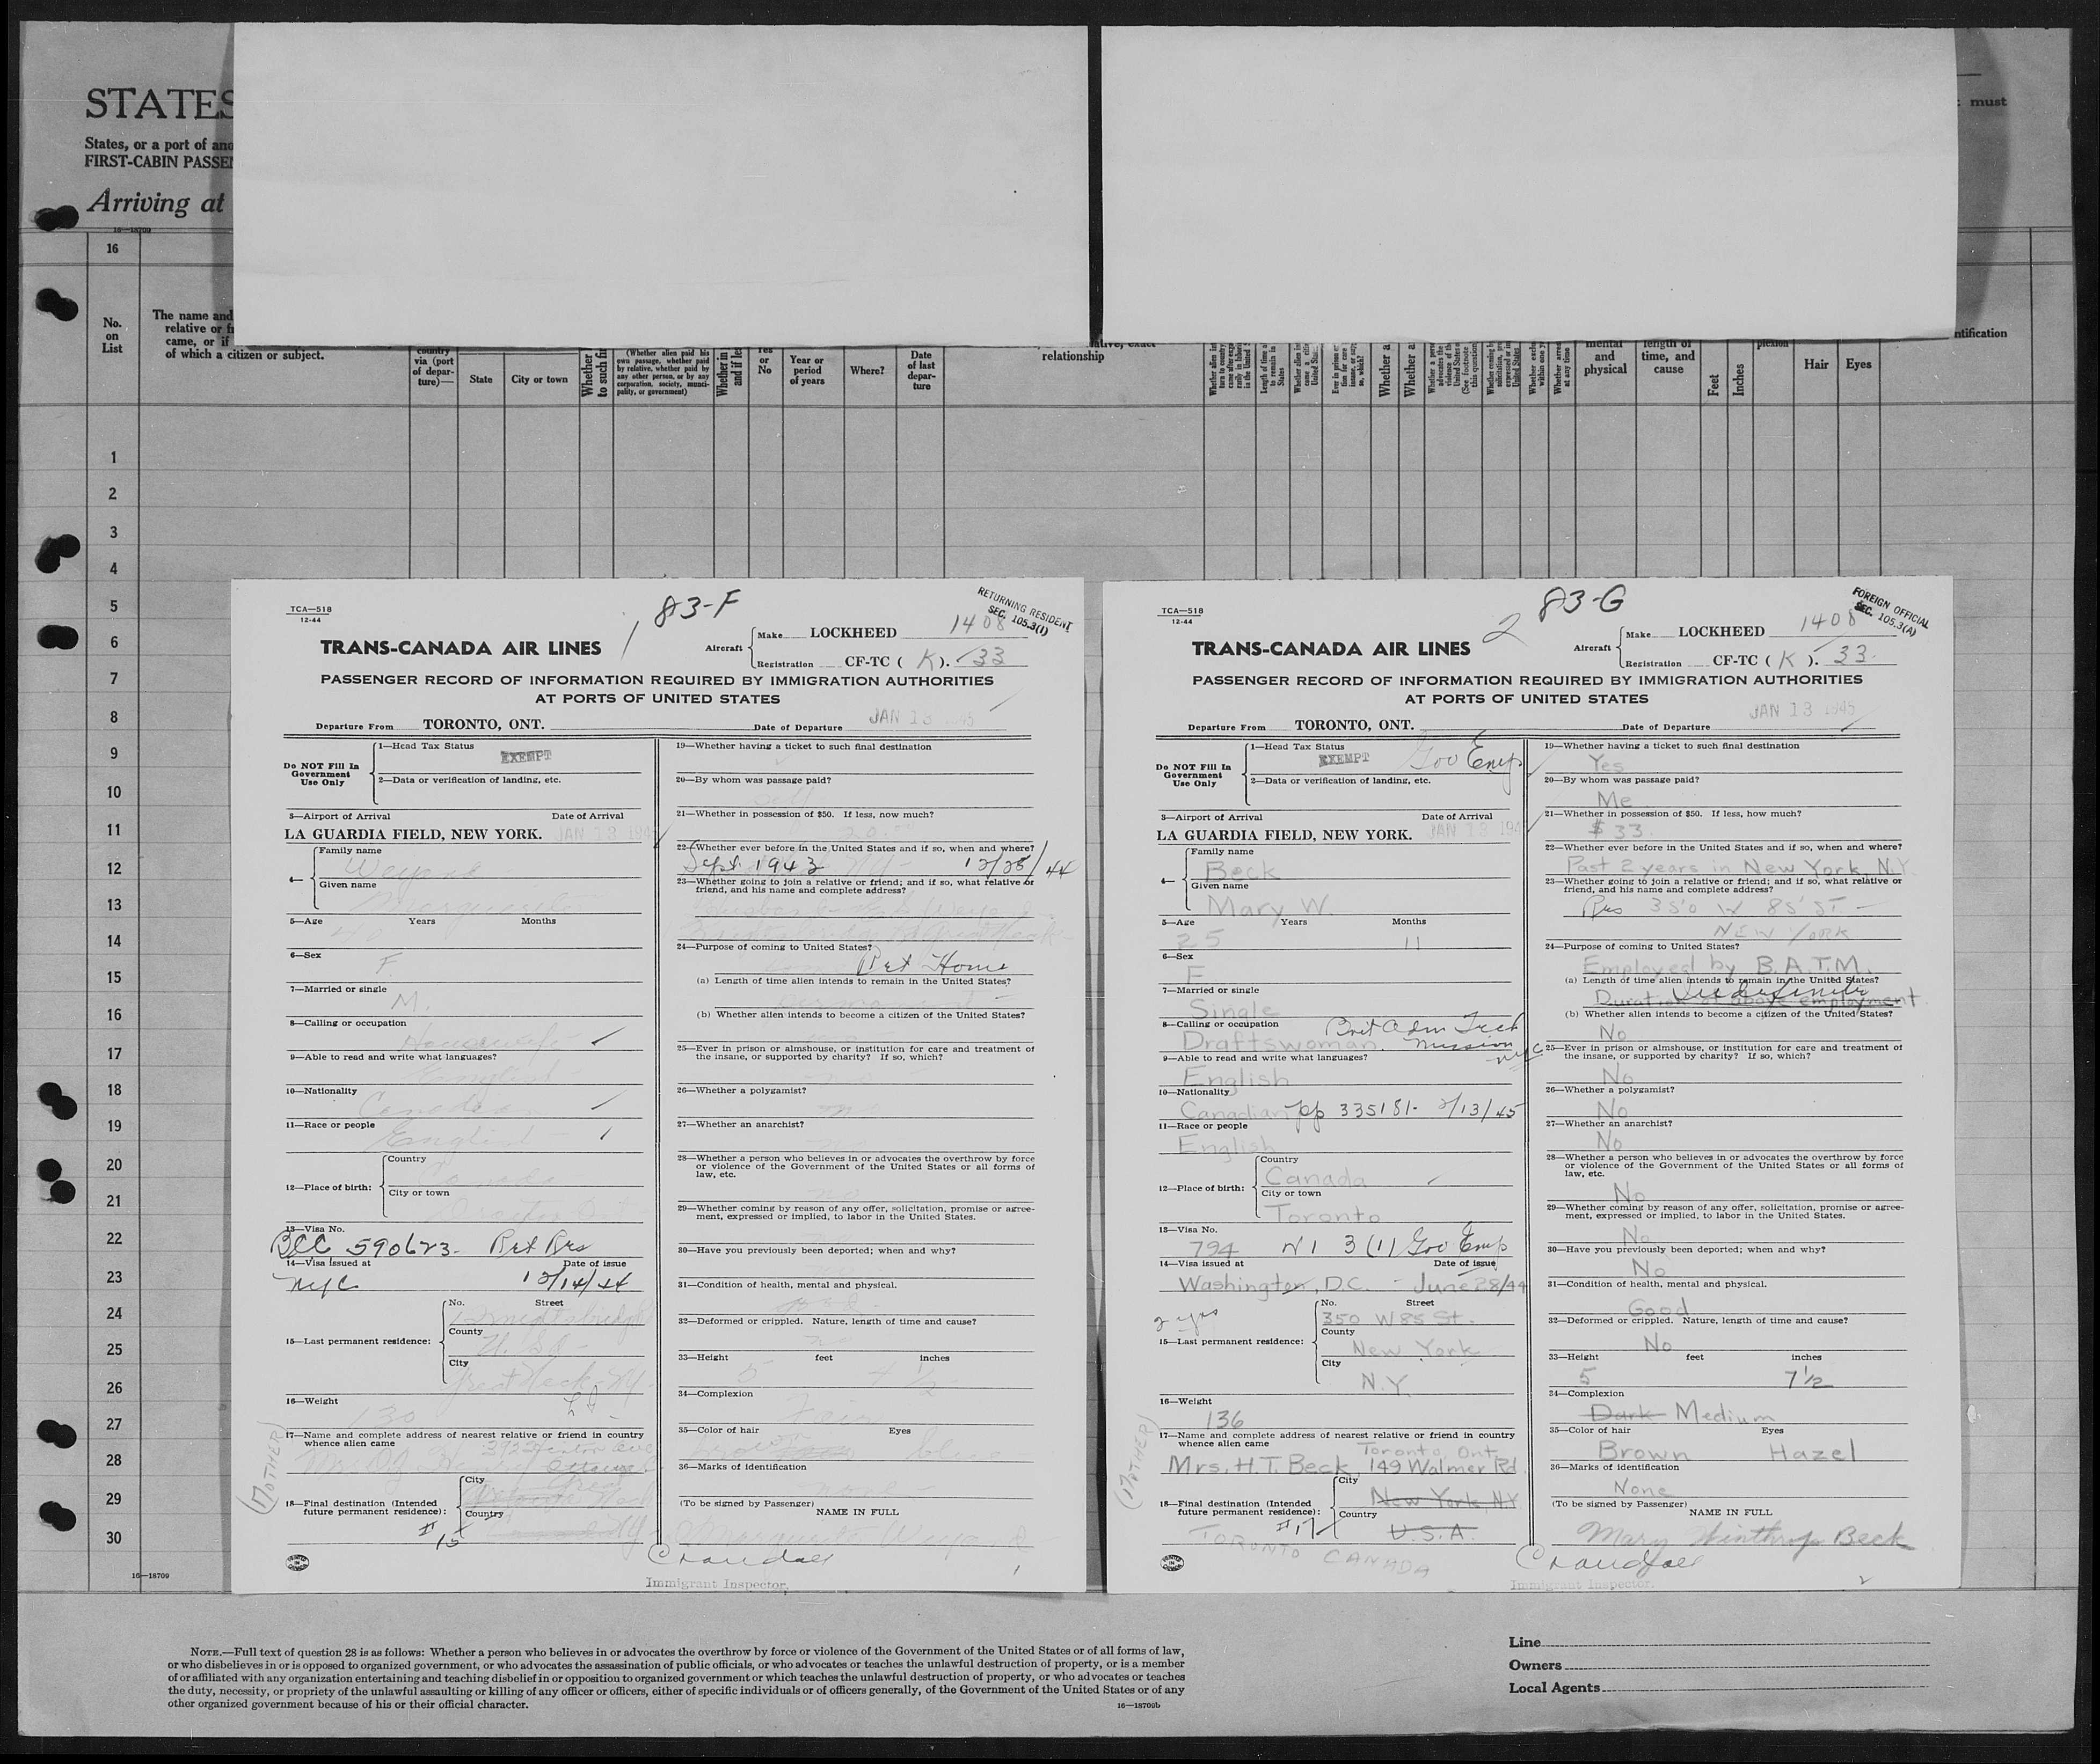 STATES
States, or a port of ano
FIRST-CABIN PASSEN
Arriving at
must
16—18709
16
No.
on
List
The name and
relative or fr
came, or if
of which a citizen or subject.
country
via (port
of depar-
ture)—
State
City or town
Whether
to such fi
(Whether alien paid his
own passage, whether paid
by relative, whether paid by
any other person, or by any
corporation, society, munici-
pality, or government)
Whether in
and if le
Yes
or
No
Year or
period
of years
Where?
Date
of last
depar-
ture
relationship
Whether a
Whether a
mental
and
physical
length of
time, and
cause
Feet
Inches
plexion
Hair
Eyes
ntification
1
2
3
4
5
6
7
8
9
10
11
12
13
14
15
16
17
18
19
20
21
22
23
24
25
26
27
28
29
30
16—18709
TCA—518
12-44
1
83-F
RETURNING RESIDENT
SEC. 105.3(1)
TRANS-CANADA AIR LINES
Aircraft
Make LOCKHEED 1408
Registration CF-TC ( K ). 33
PASSENGER RECORD OF INFORMATION REQUIRED BY IMMIGRATION AUTHORITIES
AT PORTS OF UNITED STATES
Departure From TORONTO, ONT. Date of Departure JAN 13 1945
Do NOT Fill In
Government
Use Only
1—Head Tax Status EXEMPT
2—Data or verification of landing, etc.
3—Airport of Arrival Date of Arrival
LA GUARDIA FIELD, NEW YORK. JAN 13 194
4—
Family name
Given name
5—Age Years Months
6—Sex
F
7—Married or single
M.
8—Calling or occupation
Housewife
9—Able to read and write what languages?
English
10—Nationality
Canadian
11—Race or people
English
12—Place of birth:
Country
Canada
City or town
13—Visa No.
590623. Ret Res
14—Visa Issued at Date of issue
NYC 12/14/44
15—Last permanent residence:
No. Street
County
U.S.A.
City
Great Neck NY
L I
16—Weight
130
17—Name and complete address of nearest relative or friend in country
whence alien came
(MOTHER)
18—Final destination (Intended
future permanent residence):
City
Country
# 15
19—Whether having a ticket to such final destination
20—By whom was passage paid?
Self
21—Whether in possession of $50. If less, how much?
22—Whether ever before in the United States and if so, when and where?
Sept 1943 12/25/44
23—Whether going to join a relative or friend; and if so, what relative or
friend, and his name and complete address?
24—Purpose of coming to United States?
Ret Home
(a) Length of time alien intends to remain in the United States?
(b) Whether alien intends to become a citizen of the United States?
25—Ever in prison or almshouse, or institution for care and treatment of
the insane, or supported by charity? If so, which?
26—Whether a polygamist?
no
27—Whether an anarchist?
no
28—Whether a person who believes in or advocates the overthrow by force
or violence of the Government of the United States or all forms of
law, etc.
no
29—Whether coming by reason of any offer, solicitation, promise or agree-
ment, expressed or implied, to labor in the United States.
30—Have you previously been deported; when and why?
31—Condition of health, mental and physical.
32—Deformed or crippled. Nature, length of time and cause?
33—Height feet inches
5
34—Complexion
Fair
35—Color of hair Eyes
blue
36—Marks of identification
none
(To be signed by Passenger) NAME IN FULL
Crandall
Immigrant Inspector.
1
TCA—518
12-44
2
83-G
FOREIGN OFFICIAL
SEC. 105.3(A)
TRANS-CANADA AIR LINES
Aircraft
Make LOCKHEED 1408
Registration CF-TC ( K ). 33.
PASSENGER RECORD OF INFORMATION REQUIRED BY IMMIGRATION AUTHORITIES
AT PORTS OF UNITED STATES
Departure From TORONTO, ONT. Date of Departure JAN 13 1945
Do NOT Fill In
Government
Use Only
1—Head Tax Status EXEMPT Gov Emp
2—Data or verification of landing, etc.
3—Airport of Arrival Date of Arrival
LA GUARDIA FIELD, NEW YORK. JAN 13 194
4—
Family name
Beck
Given name
Mary W.
5—Age Years Months
25 11
6—Sex
F
7—Married or single
Single
8—Calling or occupation Brit Adm Tech
Draftswoman. Mission NYC
9—Able to read and write what languages?
English
10—Nationality
Canadian pp 335181- 2/13/45
11—Race or people
English
12—Place of birth:
Country
Canada
City or town
Toronto
13—Visa No.
794 3 (1) Gov Emp
14—Visa issued at Date of issue
Washington, D.C. - June 28/44
2 yrs
15—Last permanent residence:
No. Street
350 W 85 St.
County
New York
City
N.Y.
16—Weight
136
17—Name and complete address of nearest relative or friend in country
whence alien came Toronto, Ont.
Mrs. H.T. Beck 149 Walmer Rd.
(MOTHER)
18—Final destination (Intended
future permanent residence):
City
New York, NY
Country
U.S.A.
#17
TORONTO CANADA
19—Whether having a ticket to such final destination
Yes
20—By whom was passage paid?
Me
21—Whether in possession of $50. If less, how much?
$33
22—Whether ever before in the United States and if so, when and where?
Past 2 years in New York, N.Y
23—Whether going to join a relative or friend; and if so, what relative or
friend, and his name and complete address?
Res 350 W 85 ST -
NEW YORK
24—Purpose of coming to United States?
Employed by B.A.T.M.
(a) Length of time alien intends to remain in the United States?
Indefinite
Duration above employment
(b) Whether alien intends to become a citizen of the United States?
No
25—Ever in prison or almshouse, or institution for care and treatment of
the insane, or supported by charity? If so, which?
No
26—Whether a polygamist?
No
27—Whether an anarchist?
No
28—Whether a person who believes in or advocates the overthrow by force
or violence of the Government of the United States or all forms of
law, etc.
No
29—Whether coming by reason of any offer, solicitation, promise or agree-
ment, expressed or implied, to labor in the United States.
No
30—Have you previously been deported; when and why?
No
31—Condition of health, mental and physical.
Good
32—Deformed or crippled. Nature, length of time and cause?
No
33—Height feet inches
5 7 1/2
34—Complexion
Dark Medium
35—Color of hair Eyes
Brown Hazel
36—Marks of identification
None
(To be signed by Passenger) NAME IN FULL
Mary Winthrop Beck
Crandall
Immigrant Inspector.
2
NOTE.—Full text of question 28 is as follows: Whether a person who believes in or advocates the overthrow by force or violence of the Government of the United States or of all forms of law,
or who disbelieves in or is opposed to organized government, or who advocates the assassination of public officials, or who advocates or teaches the unlawful destruction of property, or is a member
of or affiliated with any organization entertaining and teaching disbelief in or opposition to organized government or which teaches the unlawful destruction of property, or who advocates or teaches
the duty, necessity, or propriety of the unlawful assaulting or killing of any officer or officers, either of specific individuals or of officers generally, of the Government of the United States or of any
other organized government because of his or their official character.
16—18709b
Line
Owners
Local Agents